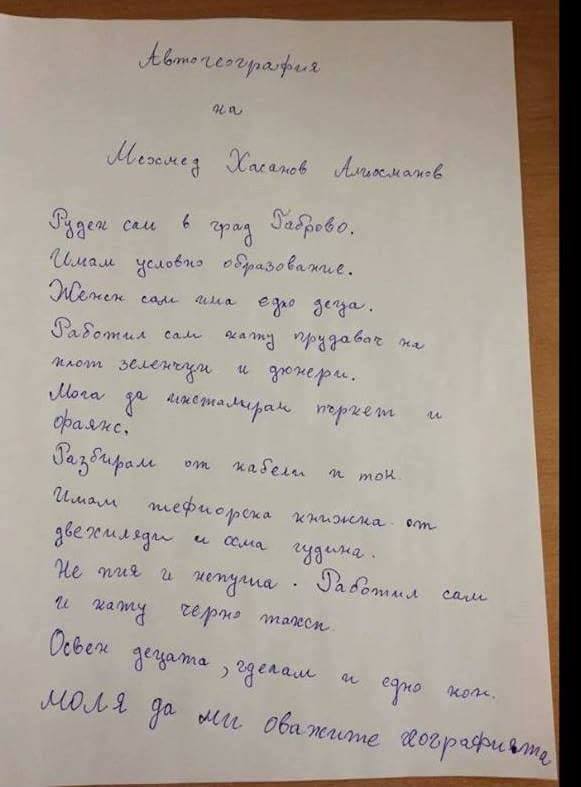 Автогеография
на
Мехмед Хасанов Алихманов
Руден сам в град Габрово.
Имам условно образование.
Женен сам има едно деца.
Работил сам кату прудавач на
плот зеленчук и дюнери.
Мога да инсталирам пъркет и
фаянс.
Разбирам от кабели и ток.
Имам шефиорска книжка от
двехиляди и осма гудина.
Не пия и непуша. Работил сам
и кату черно такси.
Освен децата, гделам и едно кон.
МОЛЯ да ми оважите хографията